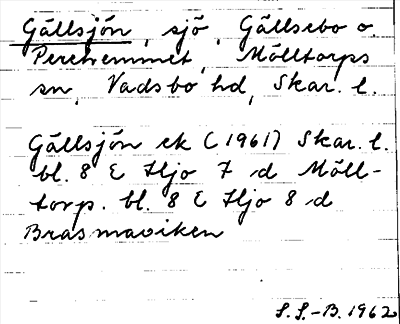 Gällsjön, sjö, Gällsebo o.
Perehemmet, Mölltorps
sn, Vadsbo hd, Skar. l.
Gällsjön ek (1961) Skar. l.
bl. 8 E Hjo 7 d Möll-
torp. bl. 8 E Hjo 8 d
Brasmaviken
S.S.-B. 1962